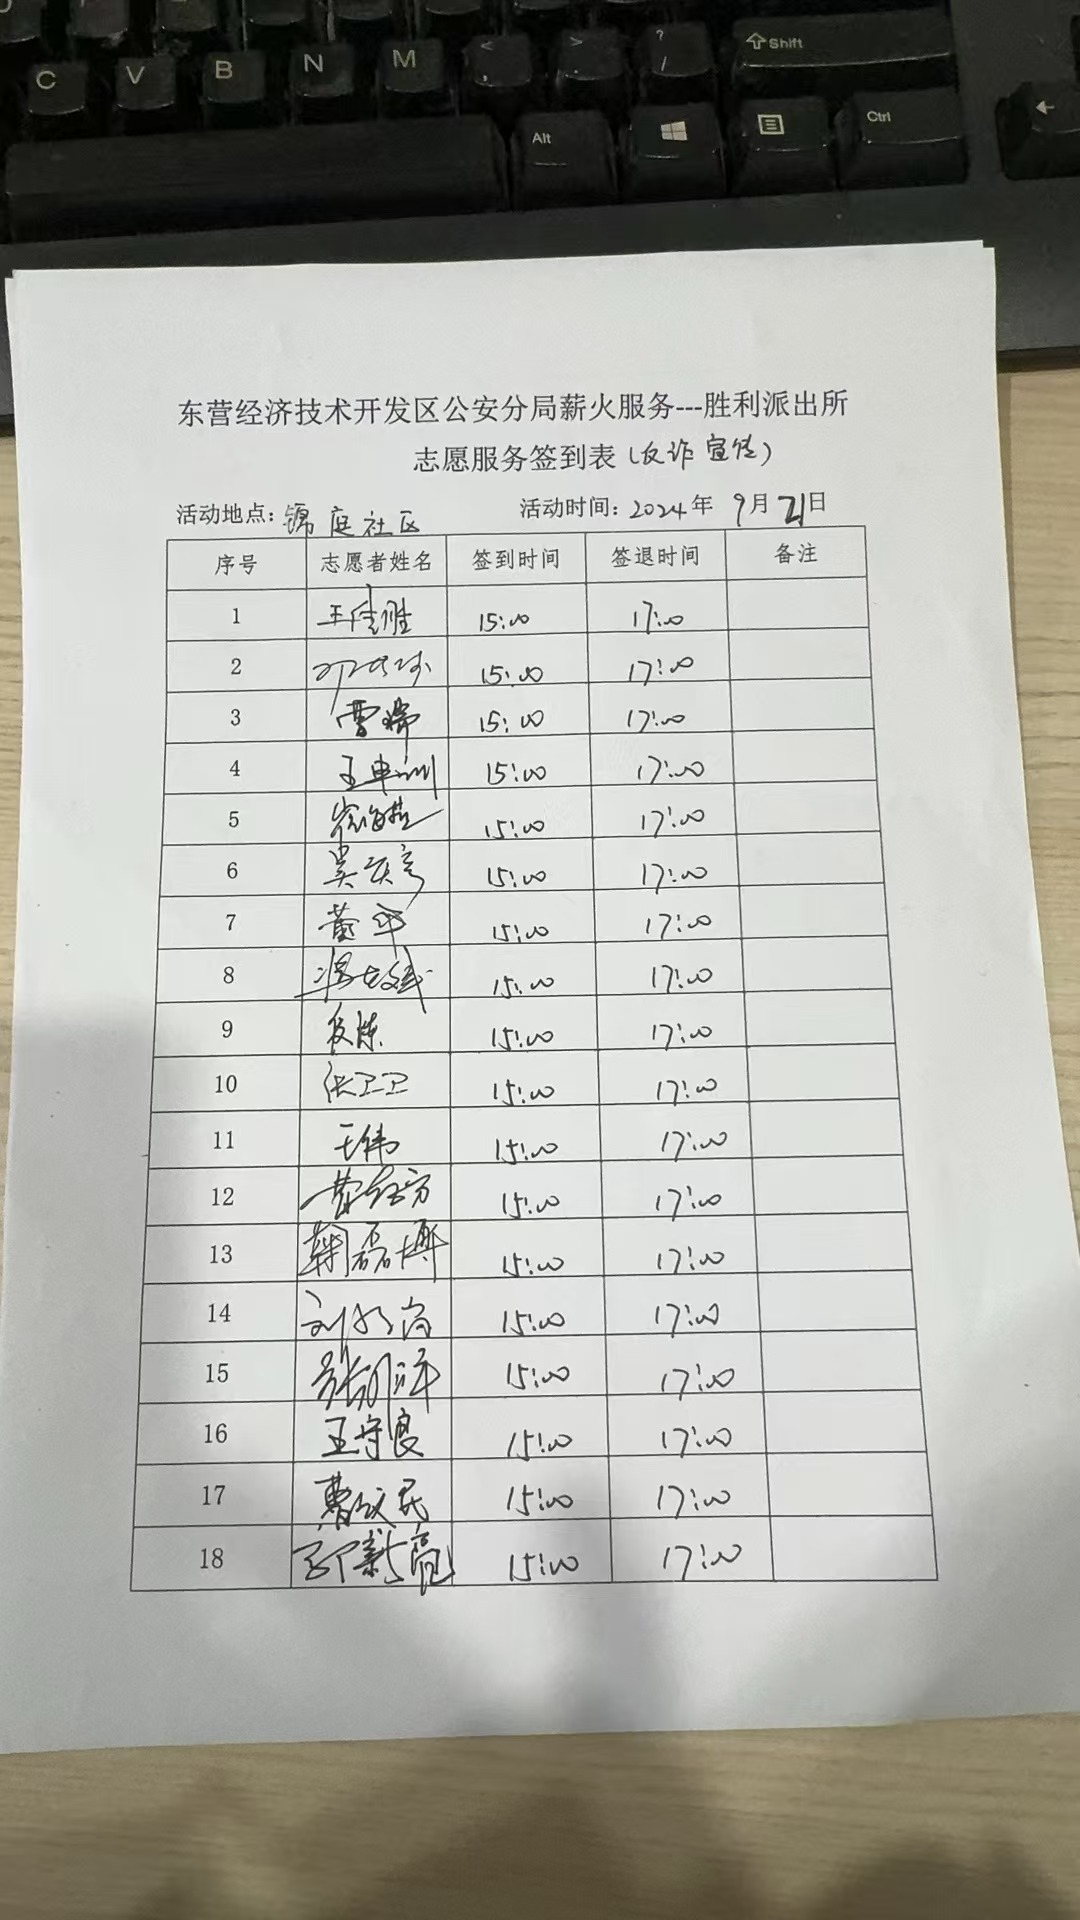 C V B N M < , > . ? / Shift
Alt Ctrl
东营经济技术开发区公安分局薪火服务---胜利派出所
志愿服务签到表(反诈宣传)
活动地点: 锦庭社区 活动时间: 2024年 9月 21日
序号 志愿者姓名 签到时间 签退时间 备注
1 王佳胜 15:00 17:00
2 15:00 17:00
3 曹瑞 15:00 17:00
4 王申训 15:00 17:00
5 15:00 17:00
6 15:00 17:00
7 董军 15:00 17:00
8 15:00 17:00
9 15:00 17:00
10 张卫卫 15:00 17:00
11 王伟 15:00 17:00
12 15:00 17:00
13 鞠磊博 15:00 17:00
14 15:00 17:00
15 15:00 17:00
16 王守良 15:00 17:00
17 15:00 17:00
18 邓新亮 15:00 17:00